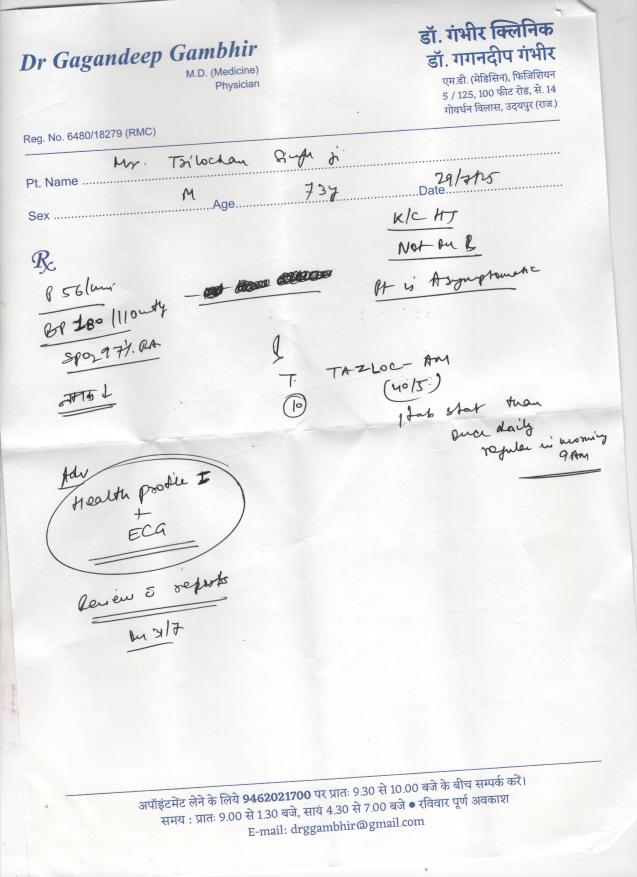 Dr Gagandeep Gambhir
M.D. (Medicine)
Physician
Reg. No. 6480/18279 (RMC)
डॉ. गंभीर क्लिनिक
डॉ. गगनदीप गंभीर
एम.डी. (मेडिसिन), फिजिशियन
5 / 125, 100 फीट रोड, से. 14
गोवर्धन विलास, उदयपुर (राज.)
Pt. Name Mr. Trilochan Singh ji
Sex M Age 73y Date 29/7/25
K/C HT
Not on R
Pt is Asymptomatic
Rx
P 56/min
BP 180/110
SpO2 97% RA
नमक ↓
T. TAZLOC-AM
(40/5)
10
1 tab stat than
once daily
regular in morning
9 AM
Adv
Health profile I
+
ECG
Review c̄ reports
अपॉइंटमेंट लेने के लिये 9462021700 पर प्रातः 9.30 से 10.00 बजे के बीच सम्पर्क करें।
समय : प्रातः 9.00 से 1.30 बजे, सायं 4.30 से 7.00 बजे ● रविवार पूर्ण अवकाश
E-mail: drggambhir@gmail.com